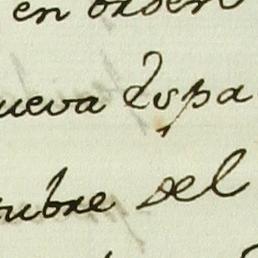 en orden
ueva Espa
tubre del